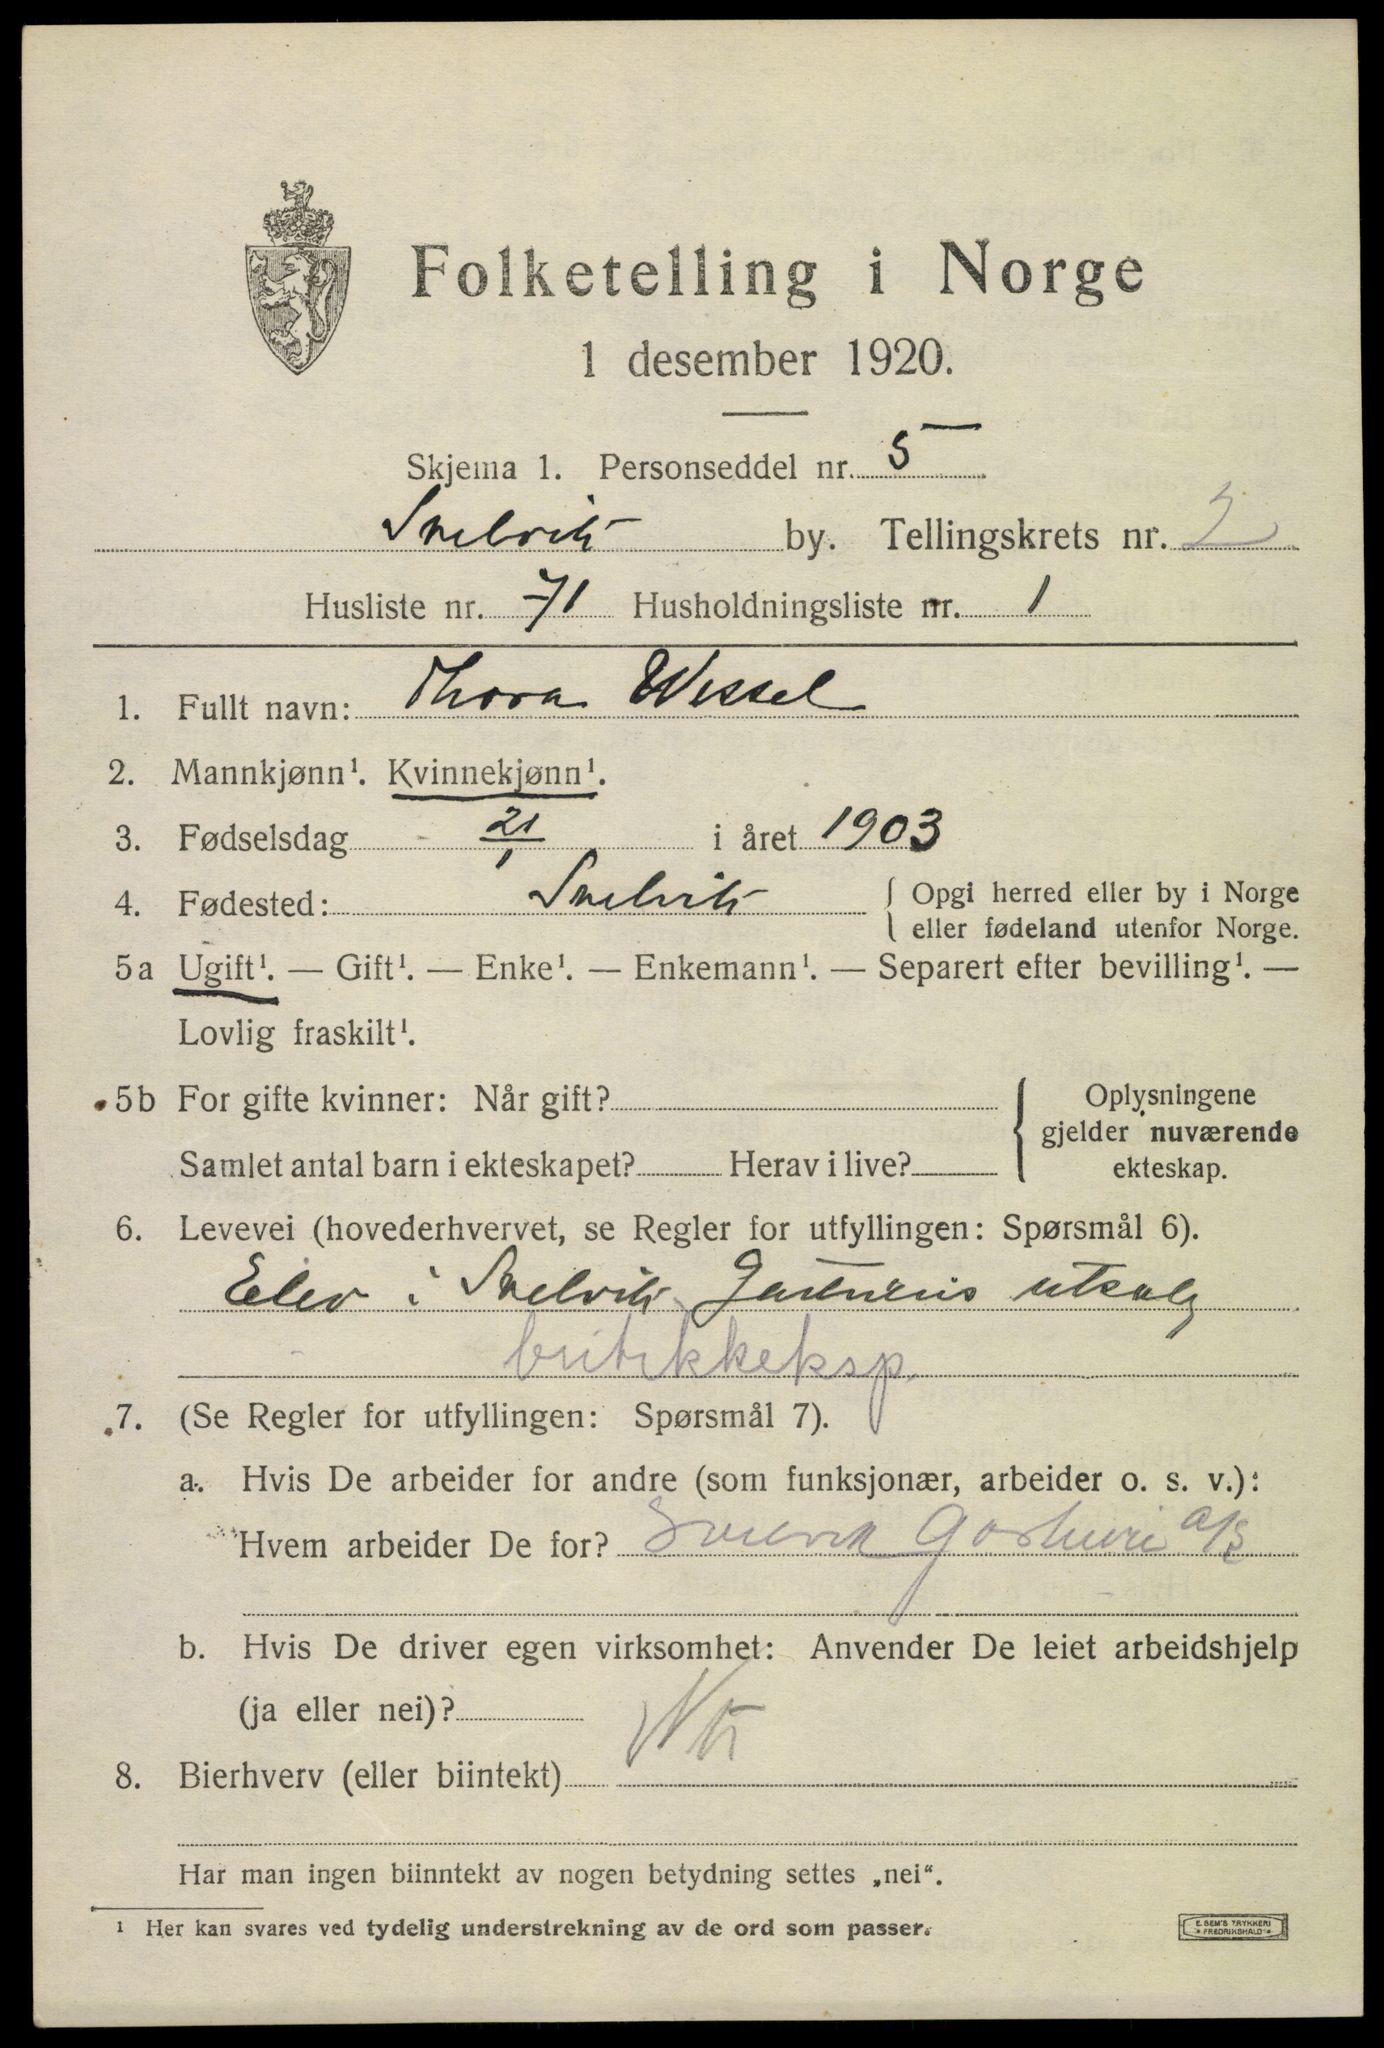 Folketelling i Norge
1 desember 1920.
Skjema 1. Personseddel nr. 5
Svelvik by. Tellingskrets nr. 2
Husliste nr. 71 Husholdningsliste nr. 1
1. Fullt navn: Thora Wessel
2. Mannkjønn¹. Kvinnekjønn¹.
3. Fødselsdag 21/1 i året 1903
4. Fødested: Svelvik { Opgi herred eller by i Norge
eller fødeland utenfor Norge.
5a Ugift¹. — Gift¹. — Enke¹. — Enkemann¹. — Separert efter bevilling¹. —
Lovlig fraskilt¹.
5b For gifte kvinner: Når gift? { Oplysningene
gjelder nuværende
Samlet antal barn i ekteskapet? Herav i live? ekteskap.
6. Levevei (hovederhvervet, se Regler for utfyllingen: Spørsmål 6).
Elev i Svelvik Gartneris utsalg
butikkeksp.
7. (Se Regler for utfyllingen: Spørsmål 7).
a. Hvis De arbeider for andre (som funksjonær, arbeider o. s. v.):
Hvem arbeider De for? Svelvik Gartneri A/S
b. Hvis De driver egen virksomhet: Anvender De leiet arbeidshjelp
(ja eller nei)?
8. Bierhverv (eller biintekt) Nei
Har man ingen biinntekt av nogen betydning settes „nei“.
¹ Her kan svares ved tydelig understrekning av de ord som passer.
E. SEM'S TRYKKERI
FREDRIKSHALD